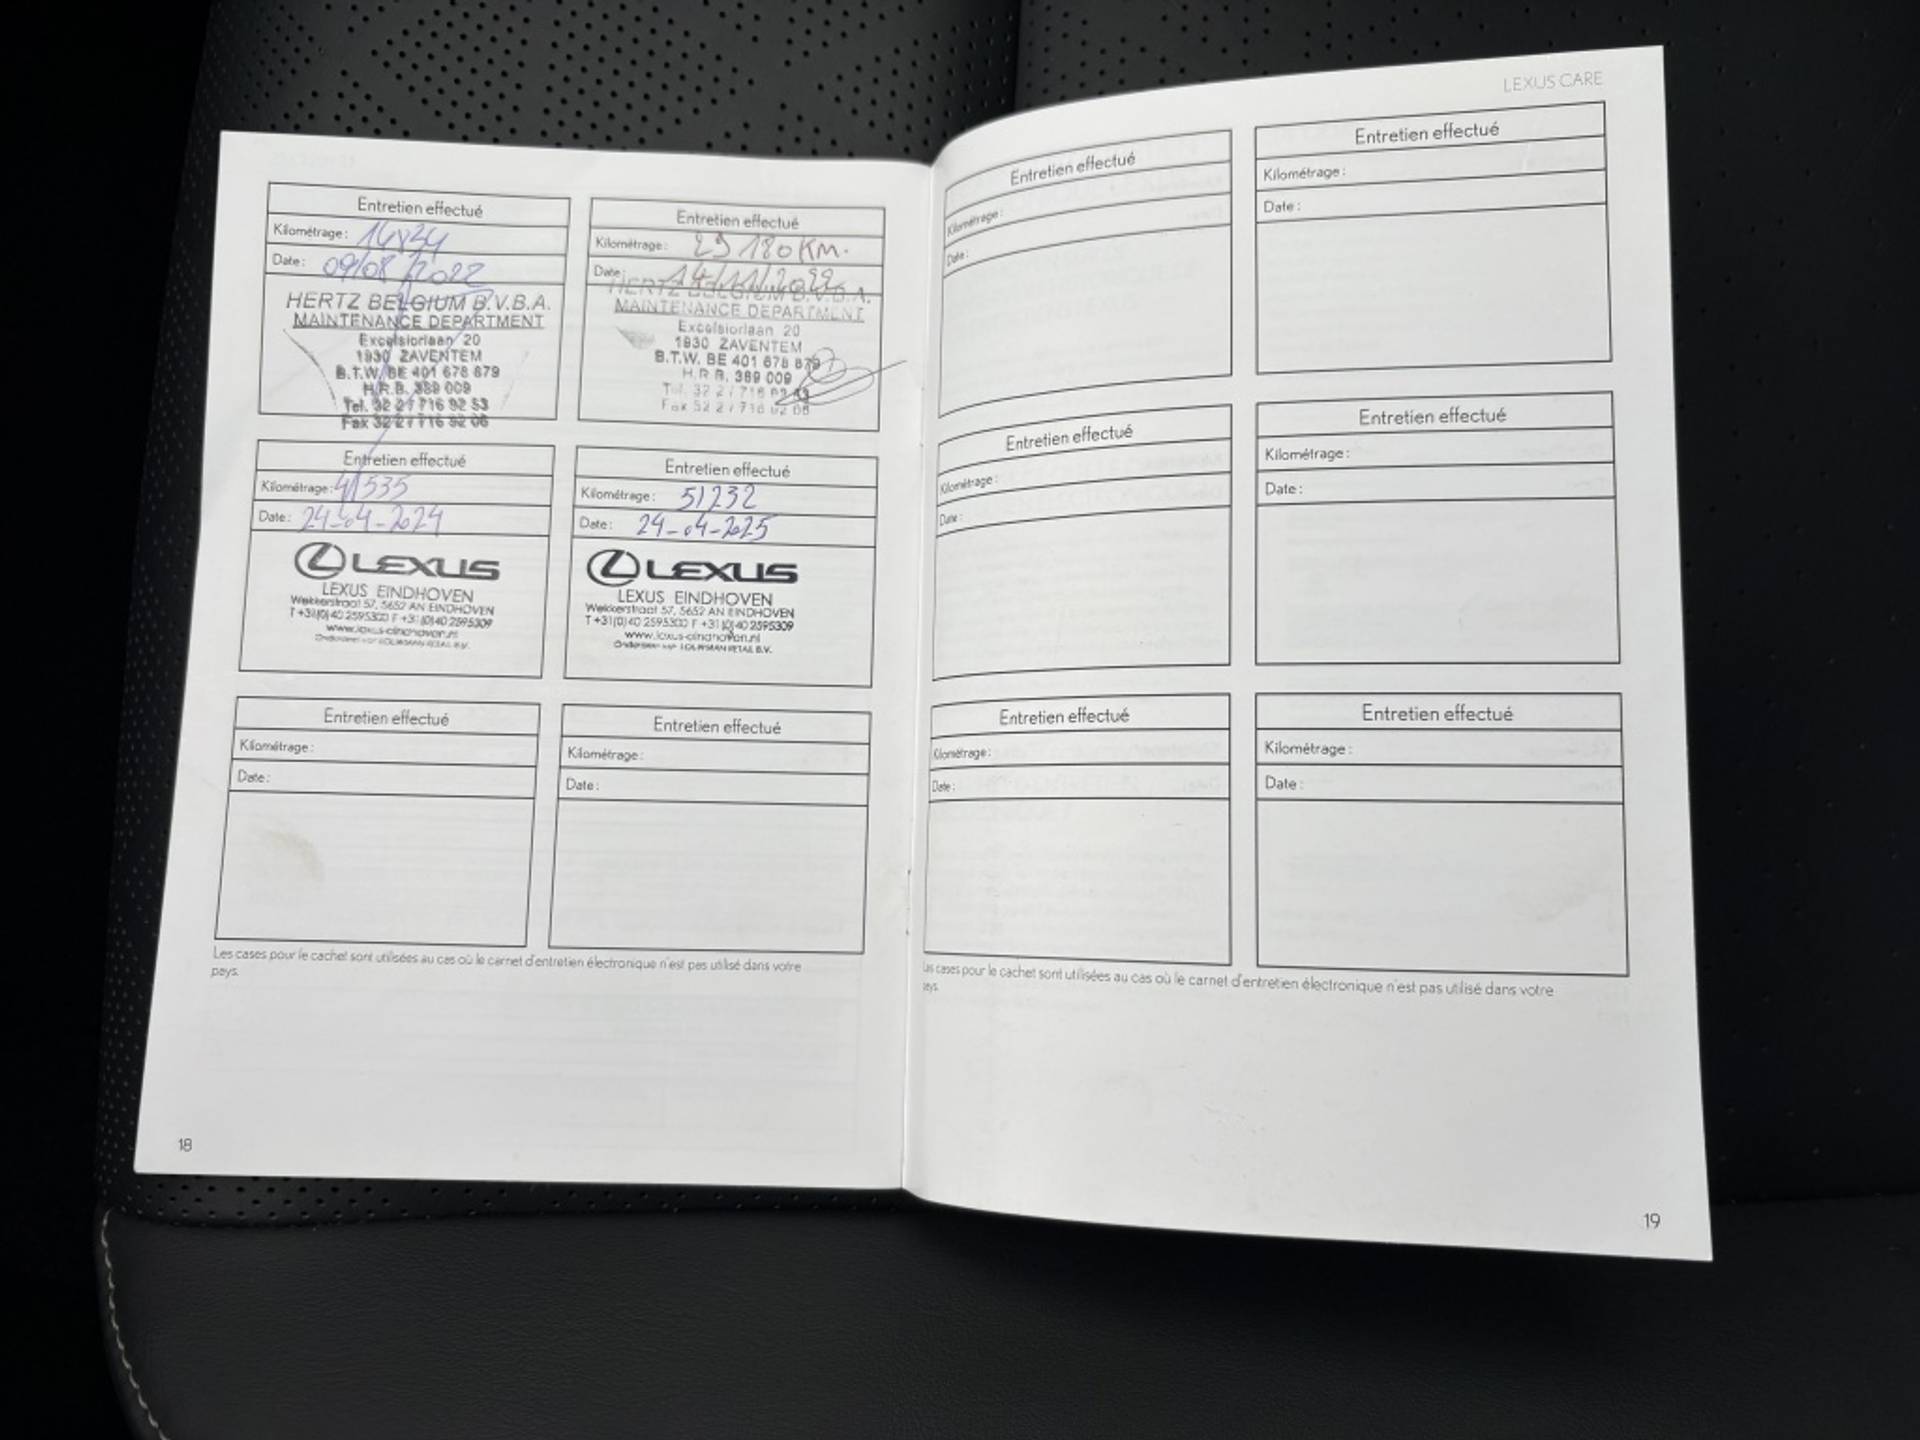 Entretien effectué
Kilométrage :
Date : 09/08/2022
HERTZ BELGIUM B.V.B.A.
MAINTENANCE DEPARTMENT
Excelsiorlaan 20
1930 ZAVENTEM
B.T.W. BE 401 678 879
H.R.B. 389 009
Tel. 32 2 / 716 92 53
Fax 32 2 / 716 92 06
Entretien effectué
Kilométrage : 29 180 KM.
Date : 14/11/2022
HERTZ BELGIUM B.V.B.A.
MAINTENANCE DEPARTMENT
Excelsiorlaan 20
1930 ZAVENTEM
B.T.W. BE 401 678 879
H.R.B. 389 009
Tel. 32 2 / 716 92 53
Fax 32 2 / 716 92 06
Entretien effectué
Kilométrage : 41535
Date : 24-04-2024
LEXUS
LEXUS EINDHOVEN
Wekkerstraat 57, 5652 AN EINDHOVEN
T +31(0)40 2595300 F +31(0)40 2595309
www.lexus-eindhoven.nl
Onderdeel van LOUWMAN RETAIL B.V.
Entretien effectué
Kilométrage : 51232
Date : 24-04-2025
LEXUS
LEXUS EINDHOVEN
Wekkerstraat 57, 5652 AN EINDHOVEN
T +31(0)40 2595300 F +31(0)40 2595309
www.lexus-eindhoven.nl
Onderdeel van LOUWMAN RETAIL B.V.
Entretien effectué
Kilométrage :
Date :
Entretien effectué
Kilométrage :
Date :
Les cases pour le cachet sont utilisées au cas où le carnet d'entretien électronique n'est pas utilisé dans votre
pays.
18
LEXUS CARE
Entretien effectué
Kilométrage :
Date :
Entretien effectué
Kilométrage :
Date :
Entretien effectué
Kilométrage :
Date :
Entretien effectué
Kilométrage :
Date :
Entretien effectué
Kilométrage :
Date :
Entretien effectué
Kilométrage :
Date :
Les cases pour le cachet sont utilisées au cas où le carnet d'entretien électronique n'est pas utilisé dans votre
pays.
19